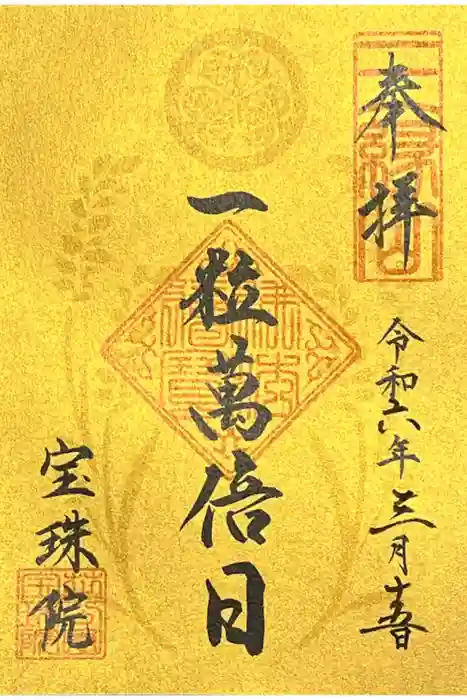 奉拝
三縁山
令和六年三月十五日
一粒萬倍日
宝珠院